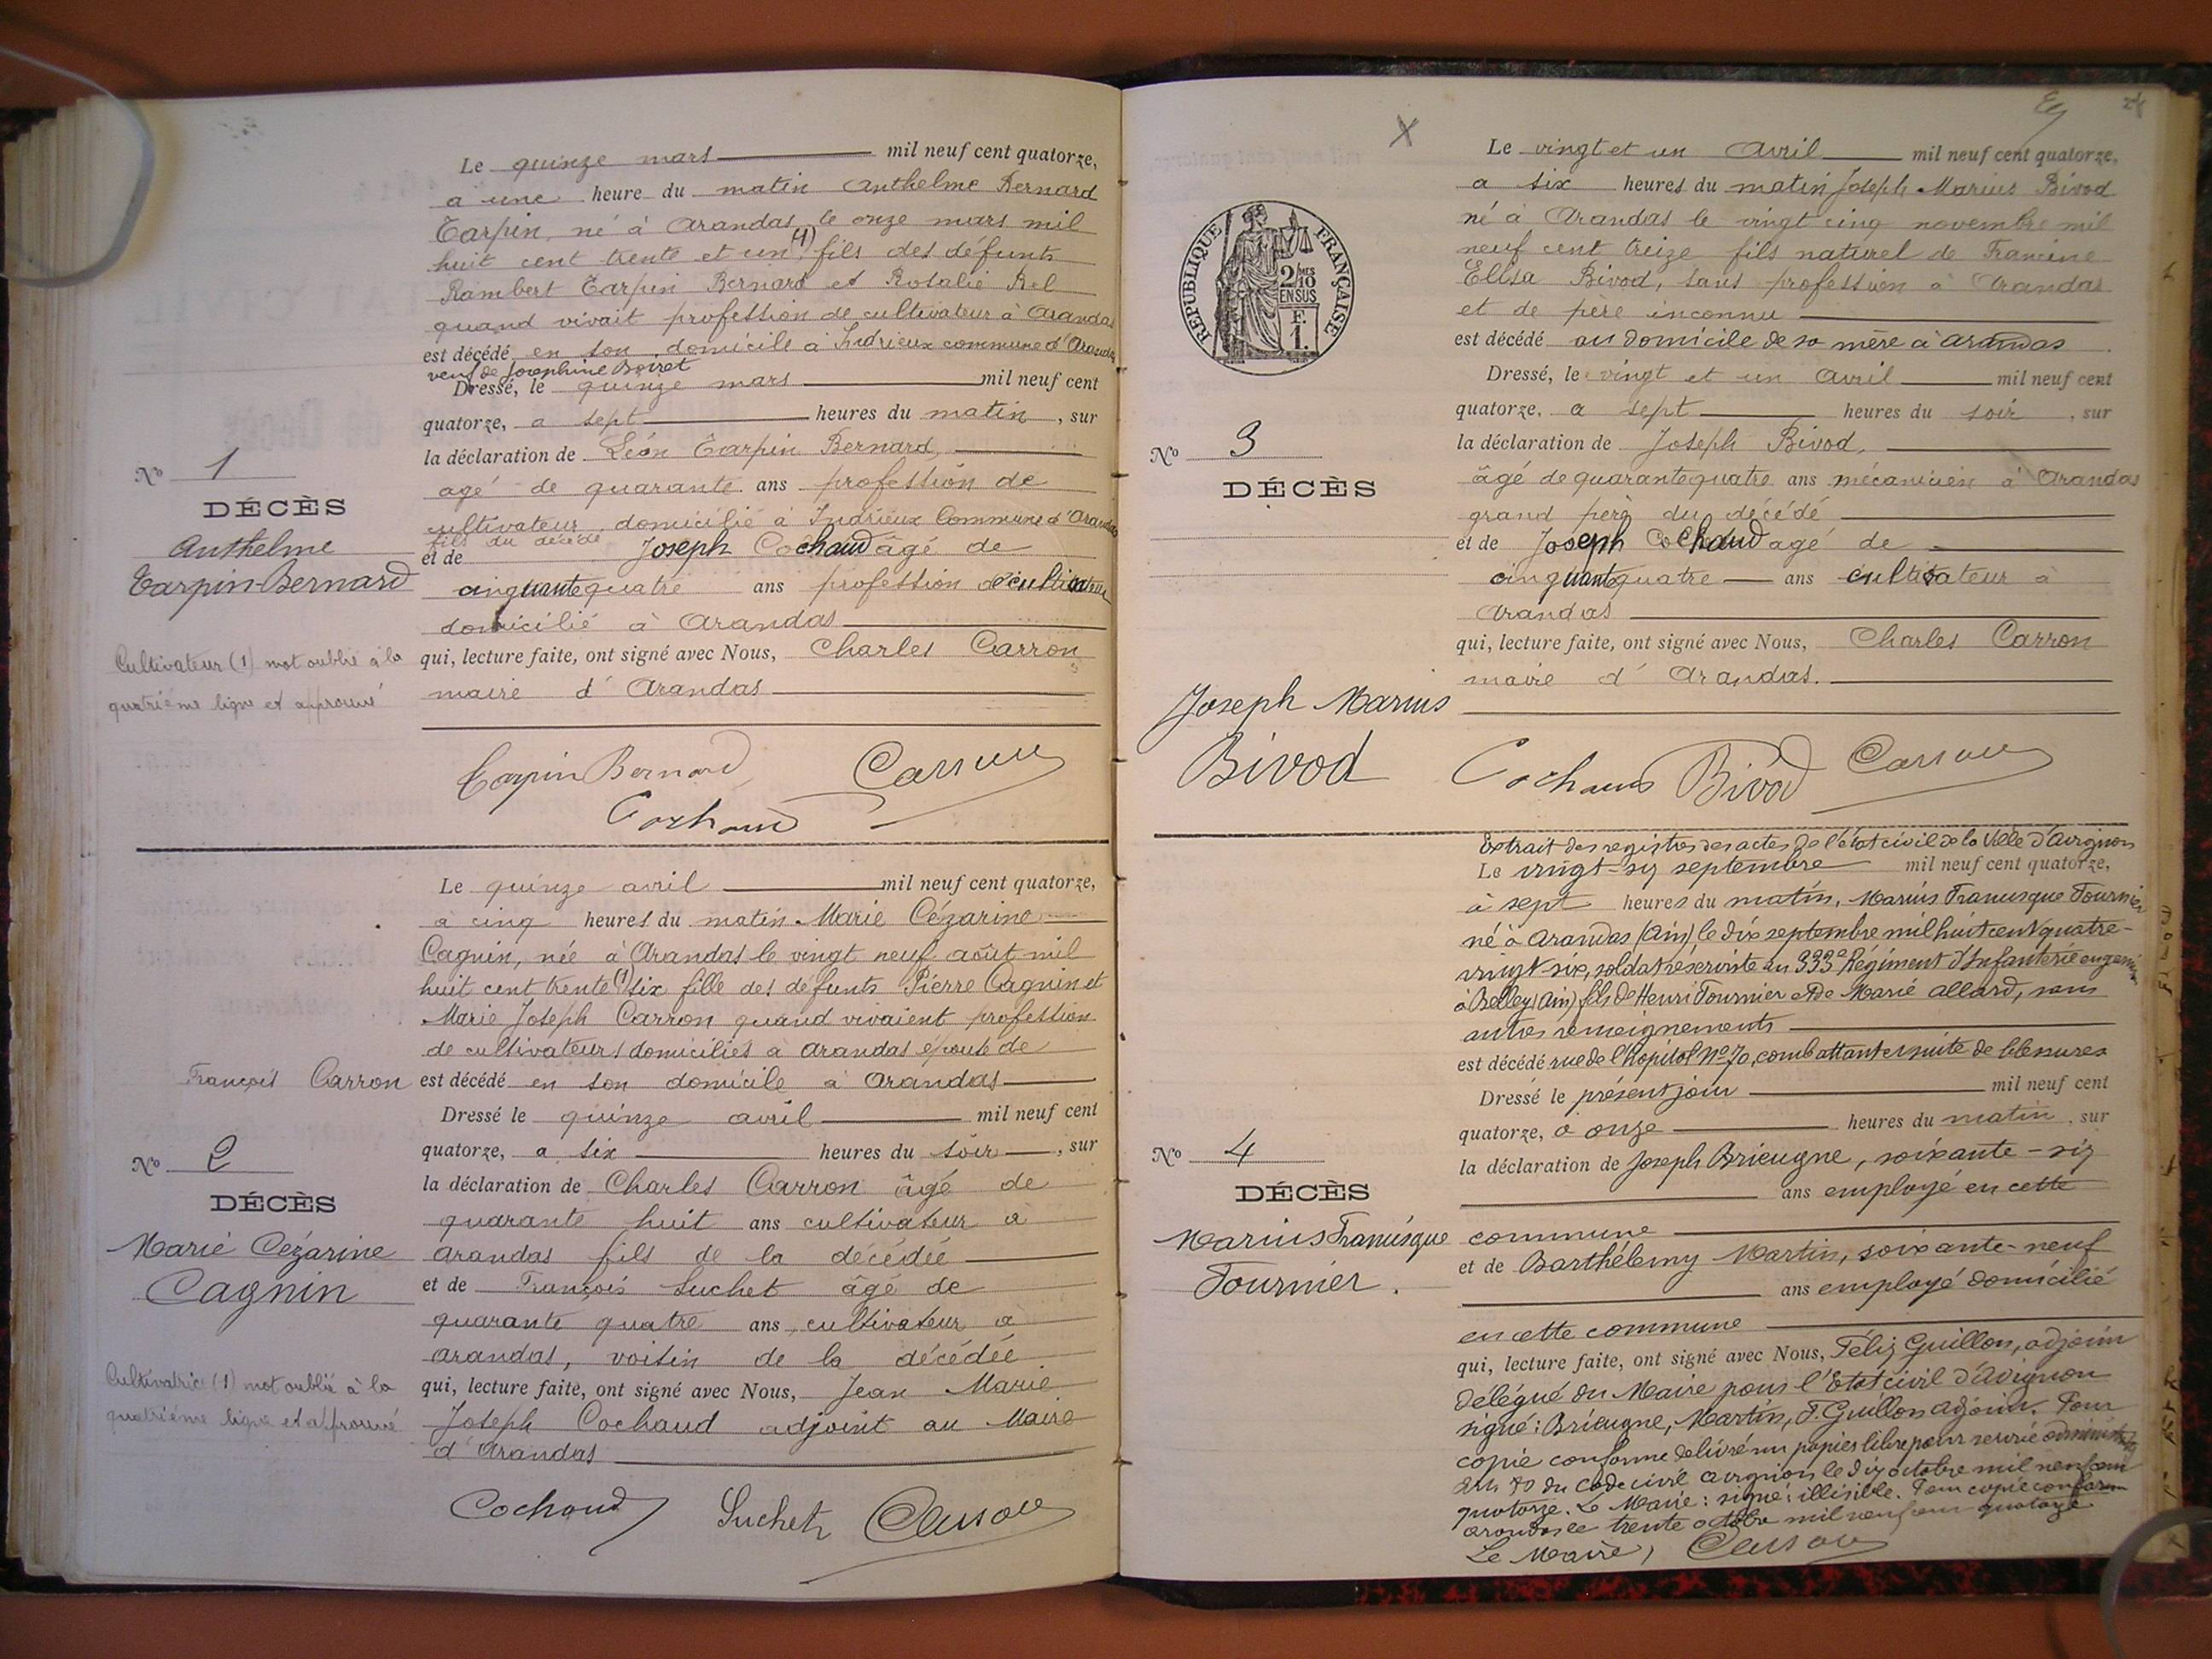 Le quinze mars mil neuf cent quatorze,
a une heure du matin Anthelme Bernard
Tarpin, né à Arandas le onze mars mil
huit cent trente et un (1) fils des défunts
Rambert Tarpin Bernard et Rosalie Rel
quand vivait profession de cultivateur à Arandas
est décédé en son domicile à Indrieux commune d'Arandas
veuf de Josephine Boiret
Dressé, le quinze mars mil neuf cent
quatorze, a sept heures du matin, sur
la déclaration de Léon Tarpin Bernard
agé de quarante ans profession de
cultivateur, domicilié à Indrieux Commune d'Arandas
fils du décédé
et de Joseph Cochaud âgé de
cinquante quatre ans profession de cultivateur
domicilié à Arandas
qui, lecture faite, ont signé avec Nous, Charles Carron
maire d'Arandas
N° 1
DÉCÈS
Anthelme
Tarpin-Bernard
Cultivateur (1) mot oublié à la
quatrième ligne et approuvé
Tarpin Bernard Carron
Cochaud
Le quinze avril mil neuf cent quatorze,
à cinq heures du matin Marie Cézarine
Cagnin, née à Arandas le vingt neuf août mil
huit cent trente (1) six fille des défunts Pierre Cagnin et
Marie Joseph Carron quand vivaient profession
de cultivateurs domiciliés à Arandas épouse de
François Carron est décédé en son domicile à Arandas
Dressé le quinze avril mil neuf cent
quatorze, a six heures du soir, sur
la déclaration de Charles Carron âgé de
quarante huit ans cultivateur à
Arandas fils de la décédée
et de François Suchet âgé de
quarante quatre ans, cultivateur à
Arandas, voisin de la décédée
qui, lecture faite, ont signé avec Nous, Jean Marie
Joseph Cochaud adjoint au Maire
d'Arandas
N° 2
DÉCÈS
Marie Cézarine
Cagnin
Cultivatrice (1) mot oublié à la
quatrième ligne et approuvé
Cochaud Suchet Carron
24
X
RÉPUBLIQUE FRANÇAISE
2/10 MES
EN SUS
F.
1.
Le vingt et un Avril mil neuf cent quatorze,
a six heures du matin Joseph Marius Bivod
né à Arandas le vingt cinq novembre mil
neuf cent treize fils naturel de Francine
Elisa Bivod, sans profession à Arandas
et de père inconnu
est décédé au domicile de sa mère à Arandas
Dressé, le vingt et un Avril mil neuf cent
quatorze, a sept heures du soir, sur
la déclaration de Joseph Bivod,
âgé de quarante quatre ans mécanicien à Arandas
grand père du décédé
et de Joseph Cochaud agé de
cinquante quatre ans cultivateur à
Arandas
qui, lecture faite, ont signé avec Nous, Charles Carron
maire d'Arandas.
N° 3
DÉCÈS
Joseph Marius
Bivod
Cochaud Bivod Carron
Extrait des registres des actes de l'état civil de la Ville d'Avignon
Le vingt-six septembre mil neuf cent quatorze,
à sept heures du matin, Marius Francisque Fournier
né à Arandas (Ain) le dix septembre mil huit cent quatre-
vingt six, soldat réserviste au 333e Régiment d'Infanterie en garnison
à Belley (Ain) fils de Henri Fournier et de Marie Allard, sans
autres renseignements
est décédé rue de l'hôpital N° 70, combattant et suite de blessures
Dressé le présent jour mil neuf cent
quatorze, a onze heures du matin, sur
la déclaration de Joseph Brieugne, soixante-six
ans employé en cette
commune
et de Barthélemy Martin, soixante-neuf
ans employé domicilié
en cette commune
qui, lecture faite, ont signé avec Nous, Félix Guillon, adjoint
délégué du Maire pour l'Etat civil d'Avignon
signé: Brieugne, Martin, F. Guillon adjoint. Pour
copie conforme délivré sur papier libre pour service administratif
Art. 80 du Code civil Avignon le dix octobre mil neuf cent
quatorze. Le Maire: signé: illisible. Pour copie conforme
Arandas le trente octobre mil neuf cent quatorze
Le Maire, Carron
N° 4
DÉCÈS
Marius Francisque
Fournier.